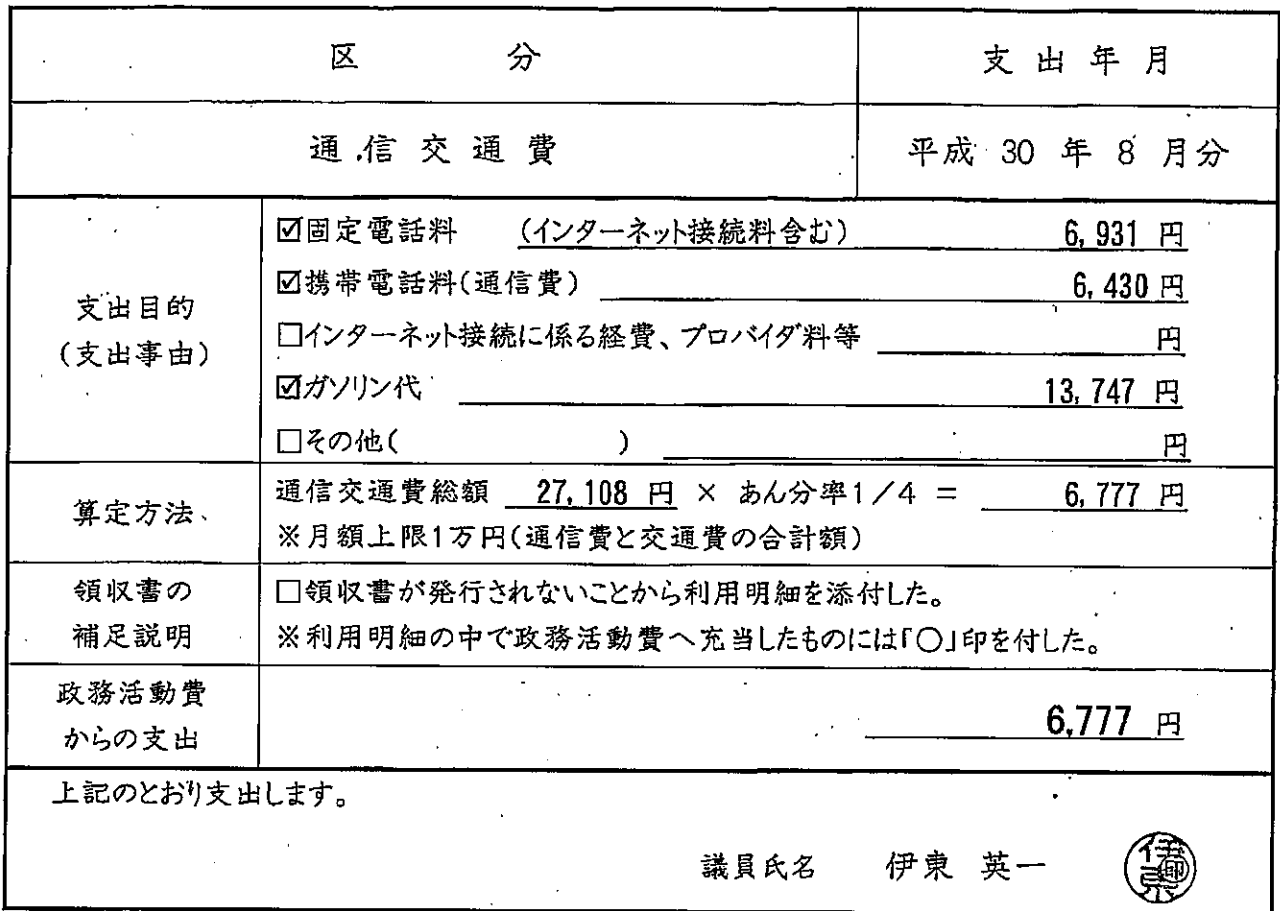 区 分 支出年月
通信交通費 平成 30 年 8 月分
支出目的
(支出事由)
☑固定電話料 (インターネット接続料含む) 6,931 円
☑携帯電話料(通信費) 6,430 円
□インターネット接続に係る経費、プロバイダ料等 円
☑ガソリン代 13,747 円
□その他( ) 円
算定方法
通信交通費総額 27,108 円 × あん分率1/4 = 6,777 円
※月額上限1万円(通信費と交通費の合計額)
領収書の
補足説明
□領収書が発行されないことから利用明細を添付した。
※利用明細の中で政務活動費へ充当したものには「○」印を付した。
政務活動費
からの支出
6,777 円
上記のとおり支出します。
議員氏名 伊東 英一
伊東印